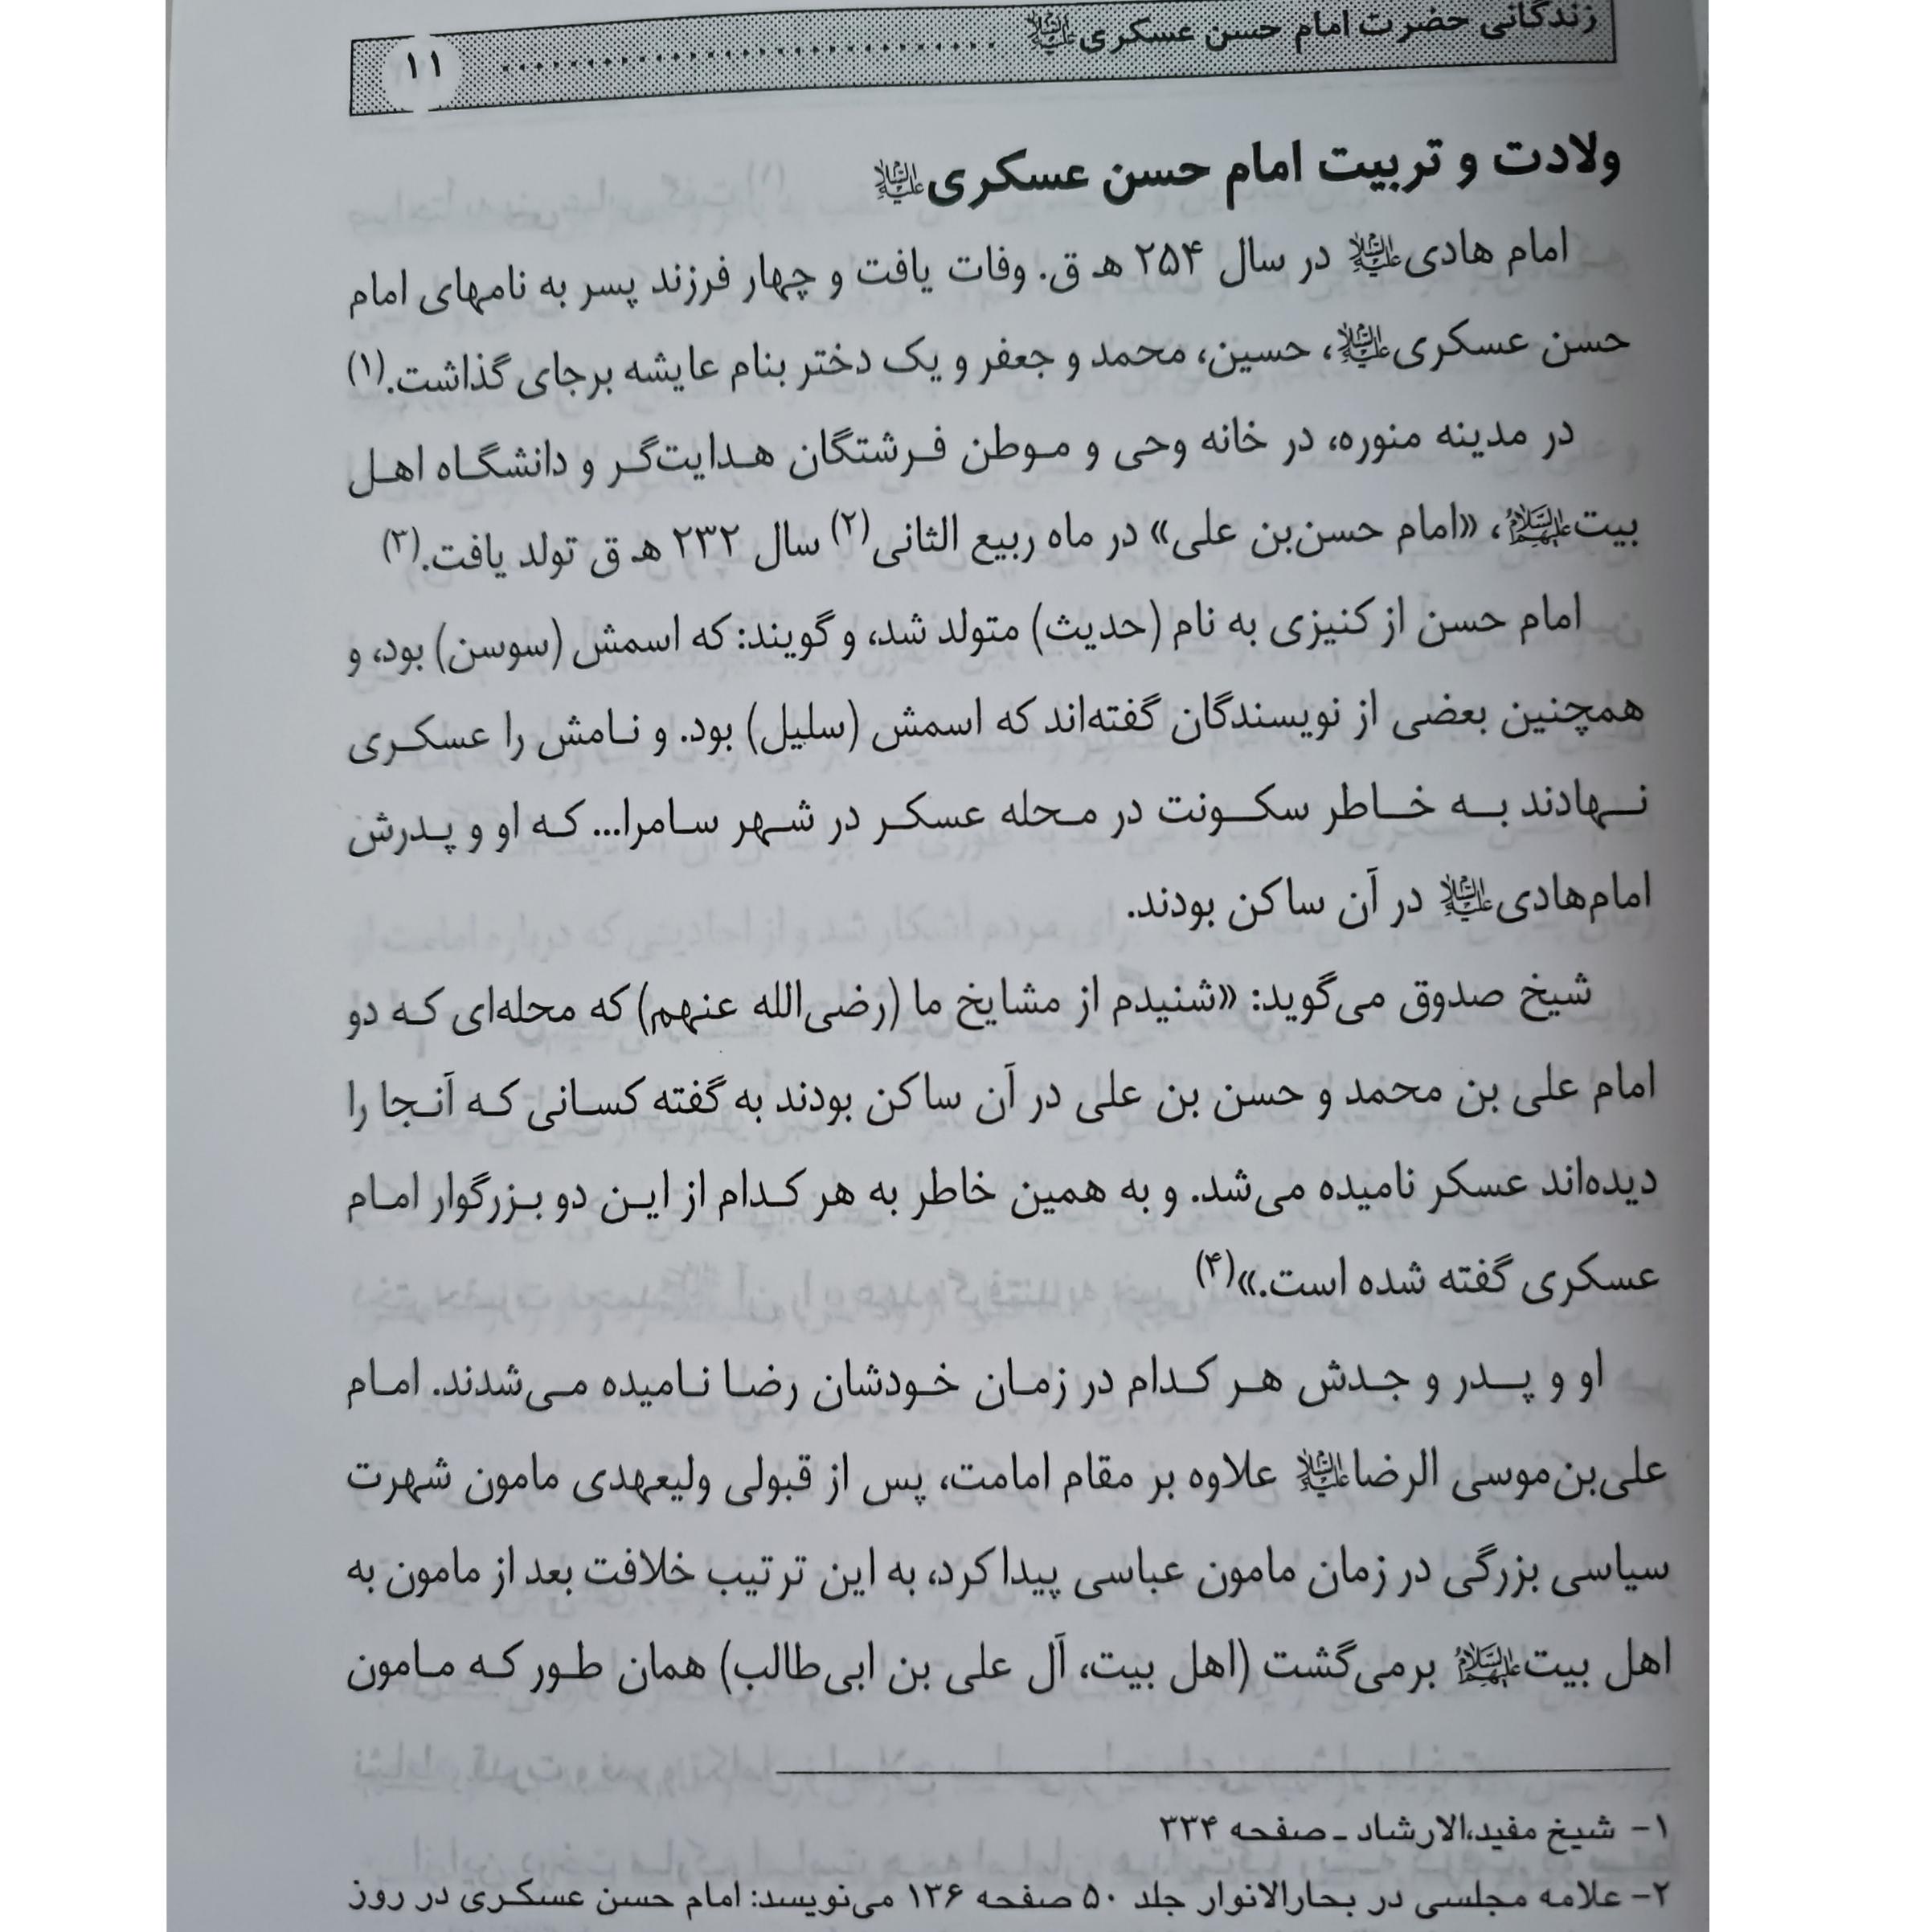 زندگانی حضرت امام حسن عسکری علیه‌السلام ........................................ ۱۱
ولادت و تربیت امام حسن عسکری علیه‌السلام
امام هادی علیه‌السلام در سال ۲۵۴ هـ ق. وفات یافت و چهار فرزند پسر به نامهای امام
حسن عسکری علیه‌السلام، حسین، محمد و جعفر و یک دختر بنام عایشه برجای گذاشت.(۱)
در مدینه منوره، در خانه وحی و موطن فرشتگان هدایت‌گر و دانشگاه اهل
بیت علیهم‌السلام، «امام حسن‌بن علی» در ماه ربیع الثانی(۲) سال ۲۳۲ هـ ق تولد یافت.(۳)
امام حسن از کنیزی به نام (حدیث) متولد شد، و گویند: که اسمش (سوسن) بود، و
همچنین بعضی از نویسندگان گفته‌اند که اسمش (سلیل) بود. و نامش را عسکری
نهادند به خاطر سکونت در محله عسکر در شهر سامرا... که او و پدرش
امام‌هادی علیه‌السلام در آن ساکن بودند.
شیخ صدوق می‌گوید: «شنیدم از مشایخ ما (رضی‌الله عنهم) که محله‌ای که دو
امام علی بن محمد و حسن بن علی در آن ساکن بودند به گفته کسانی که آنجا را
دیده‌اند عسکر نامیده می‌شد. و به همین خاطر به هر کدام از این دو بزرگوار امام
عسکری گفته شده است.»(۴)
او و پدر و جدش هر کدام در زمان خودشان رضا نامیده می‌شدند. امام
علی‌بن‌موسی الرضا علیه‌السلام علاوه بر مقام امامت، پس از قبولی ولیعهدی مامون شهرت
سیاسی بزرگی در زمان مامون عباسی پیدا کرد، به این ترتیب خلافت بعد از مامون به
اهل بیت علیهم‌السلام برمی‌گشت (اهل بیت، آل علی بن ابی‌طالب) همان طور که مامون
۱- شیخ مفید،الارشاد ـ صفحه ۳۳۴
۲- علامه مجلسی در بحارالانوار جلد ۵۰ صفحه ۱۳۶ می‌نویسد: امام حسن عسکری در روز